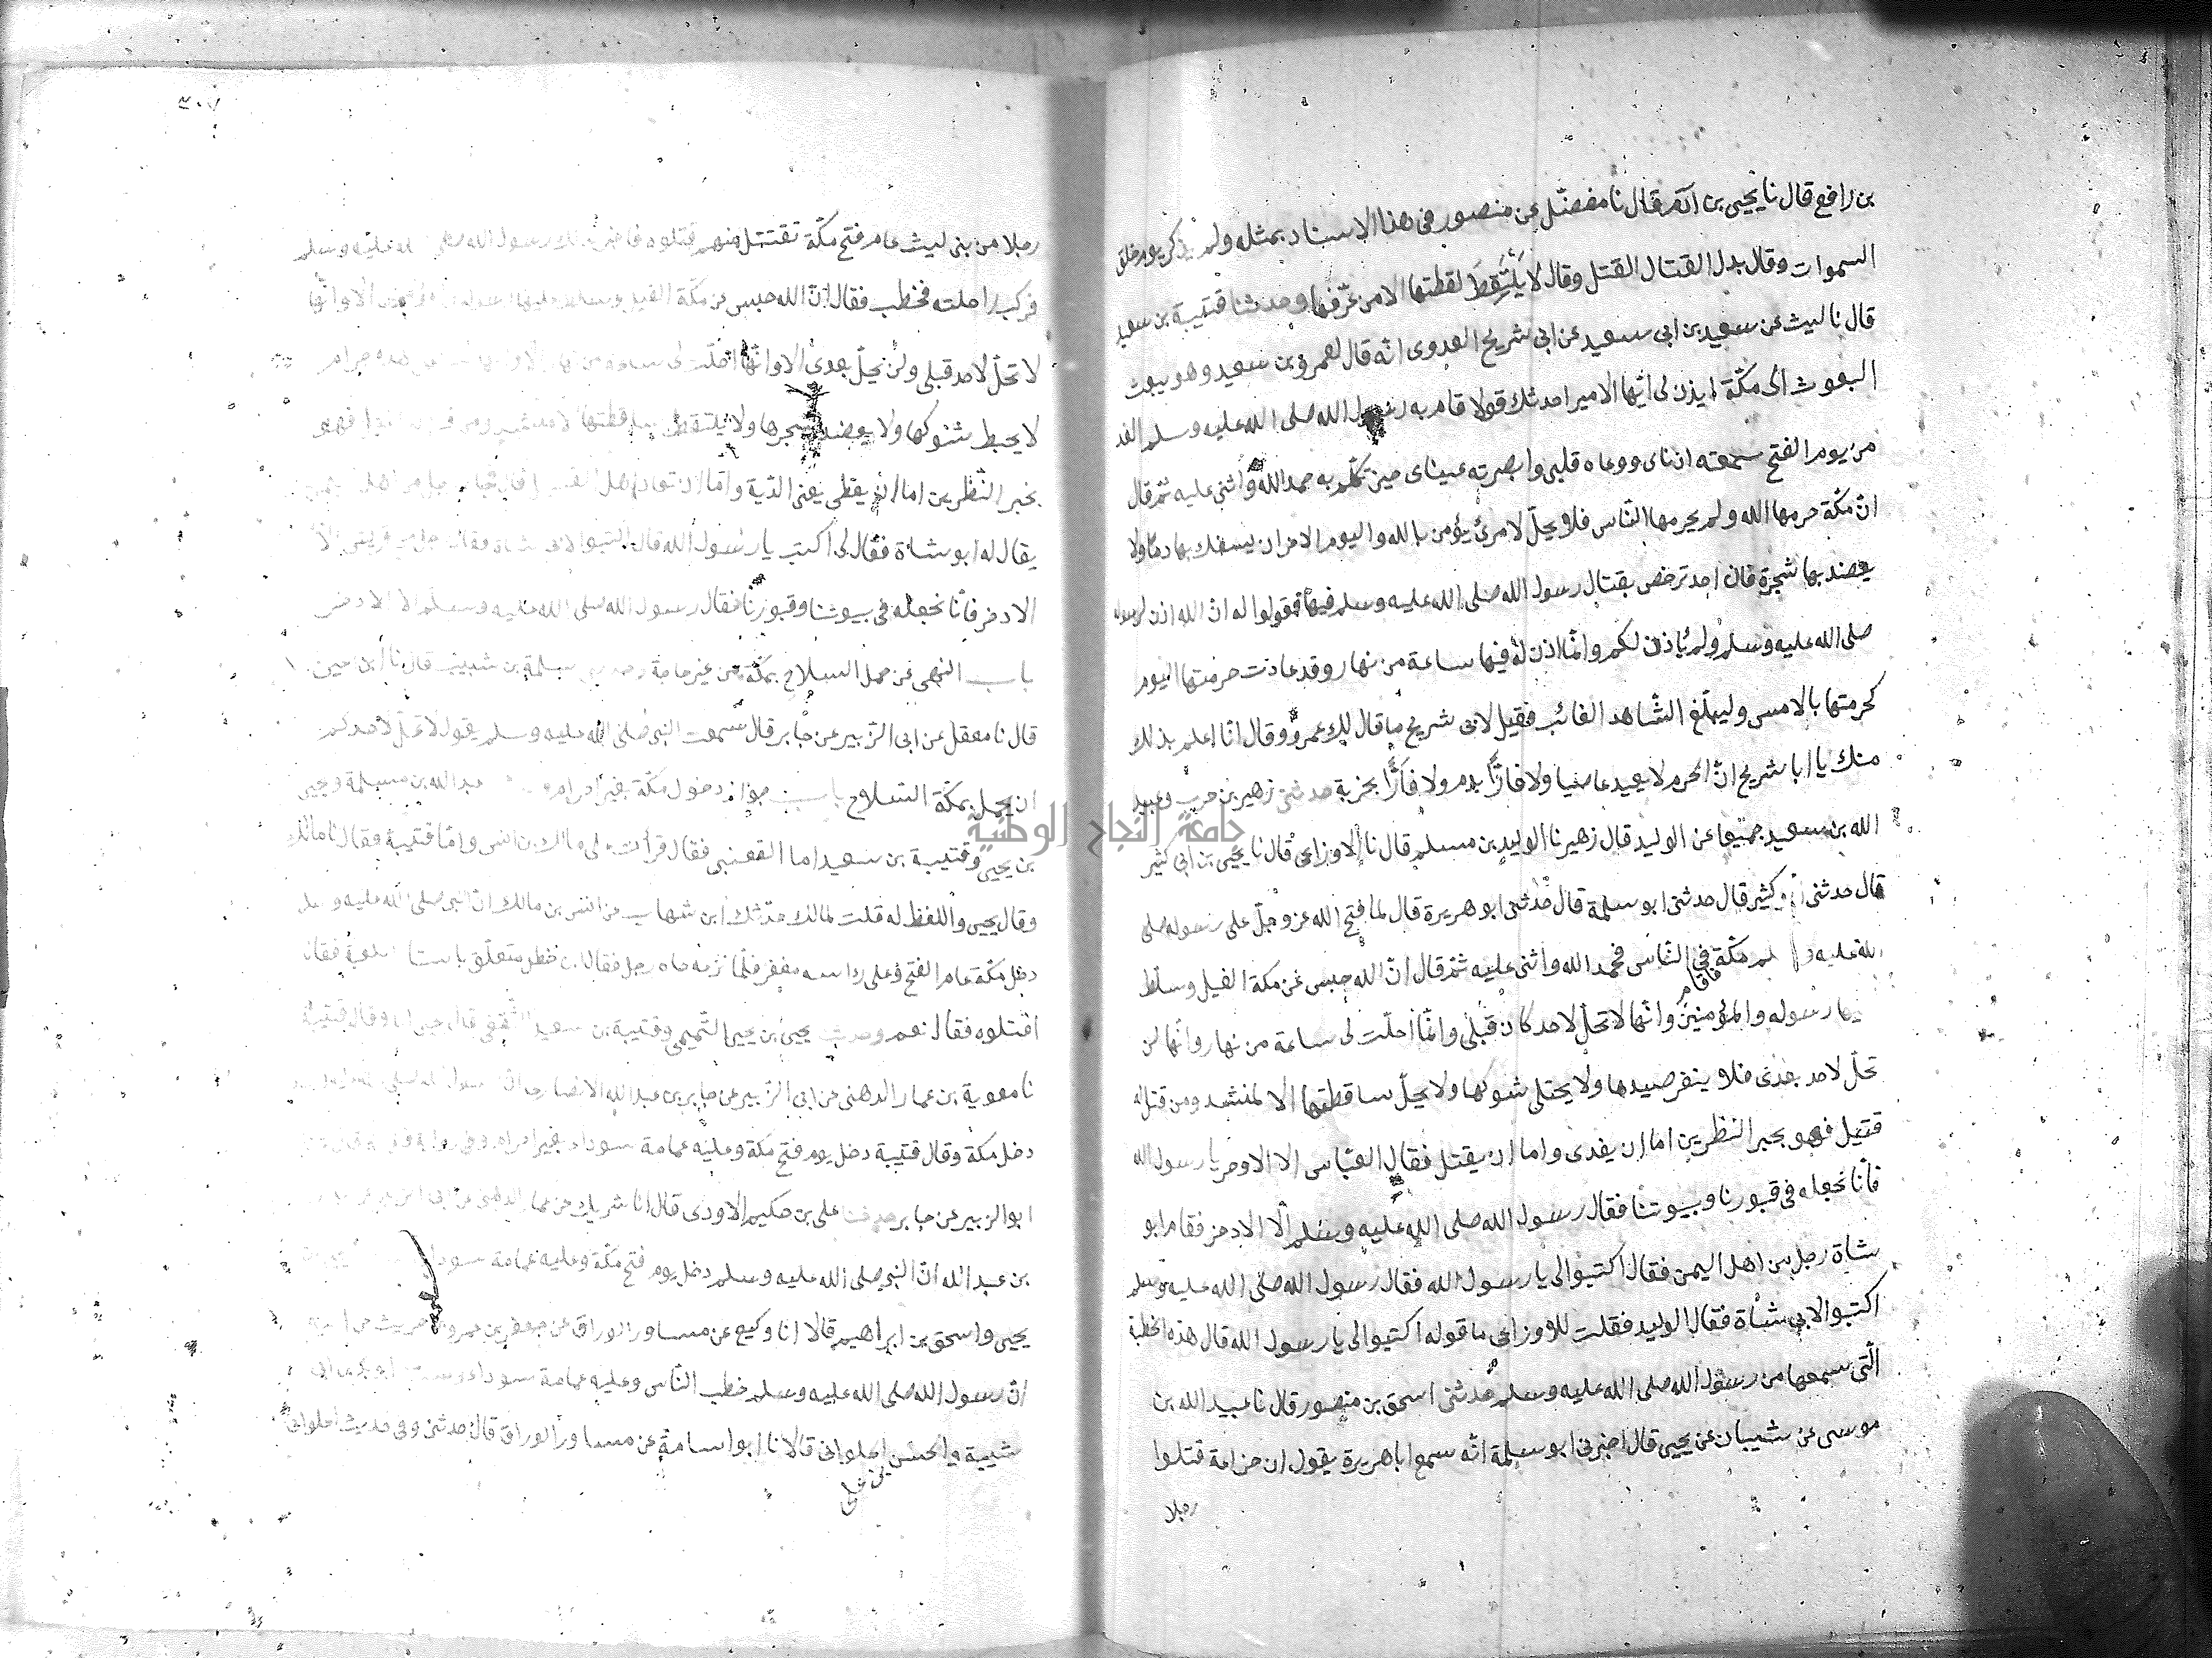 بن رافع قال نا يحيى بن آدم قال نا مفضّل عن منصور في هذا الاسناد بمثله ولم يذكر يوم خلق
السموات وقال بدل القتال القتل وقال لا يَلْتَقِطَ لقطتها الا من عرّفها وحدثنا قتيبة بن سعيد
قال نا ليث عن سعيد بن ابي سعيد عن ابي شريح العدوى انه قال لعمرو بن سعيد وهو يبعث
البعوث الى مكّة ايذن لى ايّها الامير احدثك قولا قام به رسول الله صلى الله عليه وسلم الغد
من يوم الفتح سمعته اذناى ووعاه قلبى وابصرته عيناى حين تكلّم به حمد الله واثنى عليه ثم قال
انّ مكّة حرمها الله ولم يحرمها النّاس فلا يحلّ لامرئ يؤمن بالله واليوم الاخر ان يسفك بها دما ولا
يعضد بها شجرة فان احد ترخص بقتال رسول الله صلى الله عليه وسلم فيها فقولوا له انّ الله اذن لرسوله
صلى الله عليه وسلم ولم ياذن لكم وانّما اذن له فيها ساعة من نهار وقد عادت حرمتها اليوم
كحرمتها بالامس وليبلّغ الشّاهد الغائب فقيل لابى شريح ما قال لك عمرو وقال انا اعلم بذلك
منك يا ابا شريح انّ الحرم لا يعيد عاصيا ولا فارًّا بدم ولا فارًّا بخربة حدثنى زهير بن حرب وعبيد
الله بن سعيد جميعا عن الوليد قال زهير نا الوليد بن مسلم قال نا الاوزاعى قال نا يحيى بن ابى كثير
قال حدثنى كثير قال حدثنى ابو سلمة قال حدثنى ابو هريرة قال لما فتح الله عز وجلّ على رسوله صلى
الله عليه وسلم مكّة فى النّاس فحمد الله واثنى عليه ثم قال انّ الله حبس عن مكة الفيل وسلّط
فاقام
عليها رسوله والمؤمنين وانّها لا تحلّ لاحد كان قبلى وانّما احلّت لى ساعة من نهار وانّها لن
تحلّ لاحد بعدى فلا ينفر صيدها ولا يختلى شوكها ولا يحلّ ساقطتها الا لمنشد ومن قتل له
قتيل فهو بخير النظرين اما ان يفدى واما ان يقتل فقال العبّاس الا الاذخر يا رسول الله
فانّا نجعله فى قبورنا وبيوتنا فقال رسول الله صلى الله عليه وسلم الا الاذخر فقام ابو
شاة رجل من اهل اليمن فقال اكتبوا لى يا رسول الله فقال رسول الله صلى الله عليه وسلم
اكتبوا لابى شاة فقال الوليد فقلت للاوزاعى ما قوله اكتبوا لى يا رسول الله قال هذه الخطبة
الّتى سمعها من رسول الله صلى الله عليه وسلم حدثنى اسحق بن منصور قال نا عبيد الله بن
موسى عن شيبان عن يحيى قال اخبرنى ابو سلمة انّه سمع ابا هريرة يقول ان خزاعة قتلوا
رجلا
رجلا من بنى ليث عام فتح مكّة بقتيل منهم قتلوه فاخبر بذلك رسول الله صلى الله عليه وسلم
فركب راحلته فخطب فقال انّ الله حبس عن مكّة الفيل وسلط عليها رسوله والمؤمنين الا وانّها
لا تحلّ لاحد قبلى ولن تحلّ لاحد بعدى الا وانّها احلّت لى ساعة من نهار الا وانها هذه حرام
لا يخبط شوكها ولا يعضد شجرها ولا يلتقط ساقطتها الا منشد ومن قتل له قتيل فهو
بخير النّظرين اما ان يعطى يعنى الدّية واما ان يقاد اهل القتيل قال فجاء رجل من اهل اليمن
يقال له ابو شاة فقال لى اكتب يا رسول الله قال اكتبوا لابى شاة فقال رجل من قريش الّا
الاذخر فانّا نجعله فى بيوتنا وقبورنا فقال رسول الله صلى الله عليه وسلم الا الاذخر
باب النهى عن حمل السلاح بمكّة من غير حاجة سلمة بن شبيب قال نا ابن اعين
قال نا معقل عن ابى الزّبير عن جابر قال سمعت النبى صلى الله عليه وسلم يقول لا يحلّ لاحدكم
ان يحمل بمكّة السّلاح باب جواز دخول مكّة بغير احرام عبد الله بن مسلمة ويحيى
بن يحيى وقتيبة بن سعيد اما القعنبى فقال قرات على مالك بن انس وامّا قتيبة فقال نا مالك
وقال يحيى واللفظ له قلت لمالك حدّثك ابن شهاب عن انس بن مالك انّ النبى صلى الله عليه وسلم
دخل مكّة عام الفتح وعلى راسه مغفر فلمّا نزعه جاءه رجل فقال ابن خطل متعلّق باستار الكعبة فقال
اقتلوه فقال نعم وحدثنا يحيى بن يحيى التّميمى وقتيبة بن سعيد الثّقفى قال يحيى انا وقال قتيبة
نا معوية بن عمار الدهنى عن ابى الزّبير عن جابر بن عبد الله الانصارى انّ رسول الله صلى الله عليه
دخل مكة وقال قتيبة دخل يوم فتح مكة وعليه عمامة سوداء بغير احرام وفى رواية قتيبة قال نا
ابو الزبير عن جابر حدثنا على بن حكيم الاودى قال انا شريك عن عمار الدهنى عن ابى الزبير عن
بن عبد الله انّ النبى صلى الله عليه وسلم دخل يوم فتح مكّة وعليه عمامة سوداء
يحيى واسحق بن ابراهيم قالا انا وكيع عن مساور الوراق عن جعفر بن عمرو بن حريث عن ابيه
انّ رسول الله صلى الله عليه وسلم خطب النّاس وعليه عمامة سوداء
شيبة والحسن الحلوانى قالا نا ابو اسامة عن مساور الوراق قال حدثنى وفى حديث الحلوانى
بن على
جامعة النجاح الوطنية